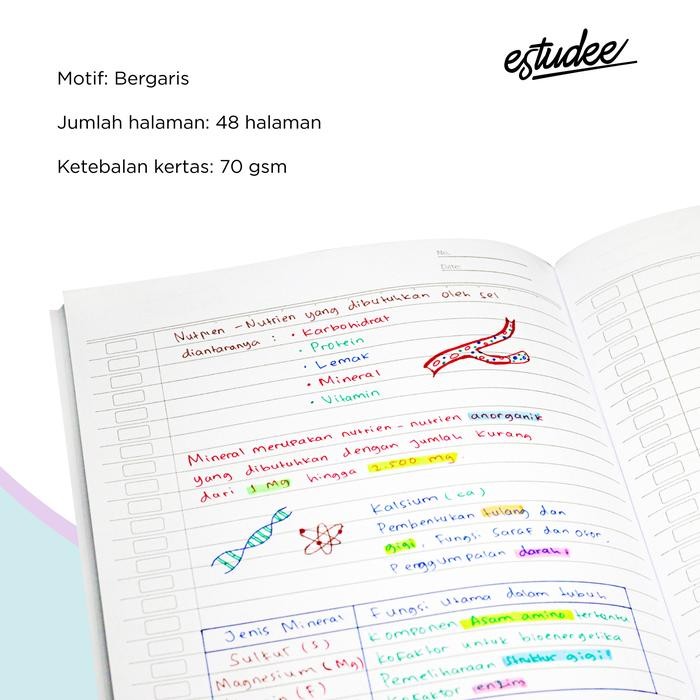 estudee
Motif: Bergaris
Jumlah halaman: 48 halaman
Ketebalan kertas: 70 gsm
No.
Date:
Nutrien - Nutrien yang dibutuhkan oleh sel
diantaranya : • Karbohidrat
• Protein
• Lemak
• Mineral
• Vitamin
Mineral merupakan nutrien - nutrien anorganik
yang dibutuhkan dengan jumlah kurang
dari 1 Mg hingga 2.500 mg.
Kalsium (ca)
Pembentukan tulang dan
gigi, Fungsi Saraf dan otot.
Penggumpalan darah.
Jenis Mineral Fungsi Utama dalam tubuh
Sulfur (S) Komponen Asam amino tertentu
Magnesium (Mg) Kofaktor untuk bioenergetika
(F) Pemeliharaan Struktur gigi!
Kofaktor enzim